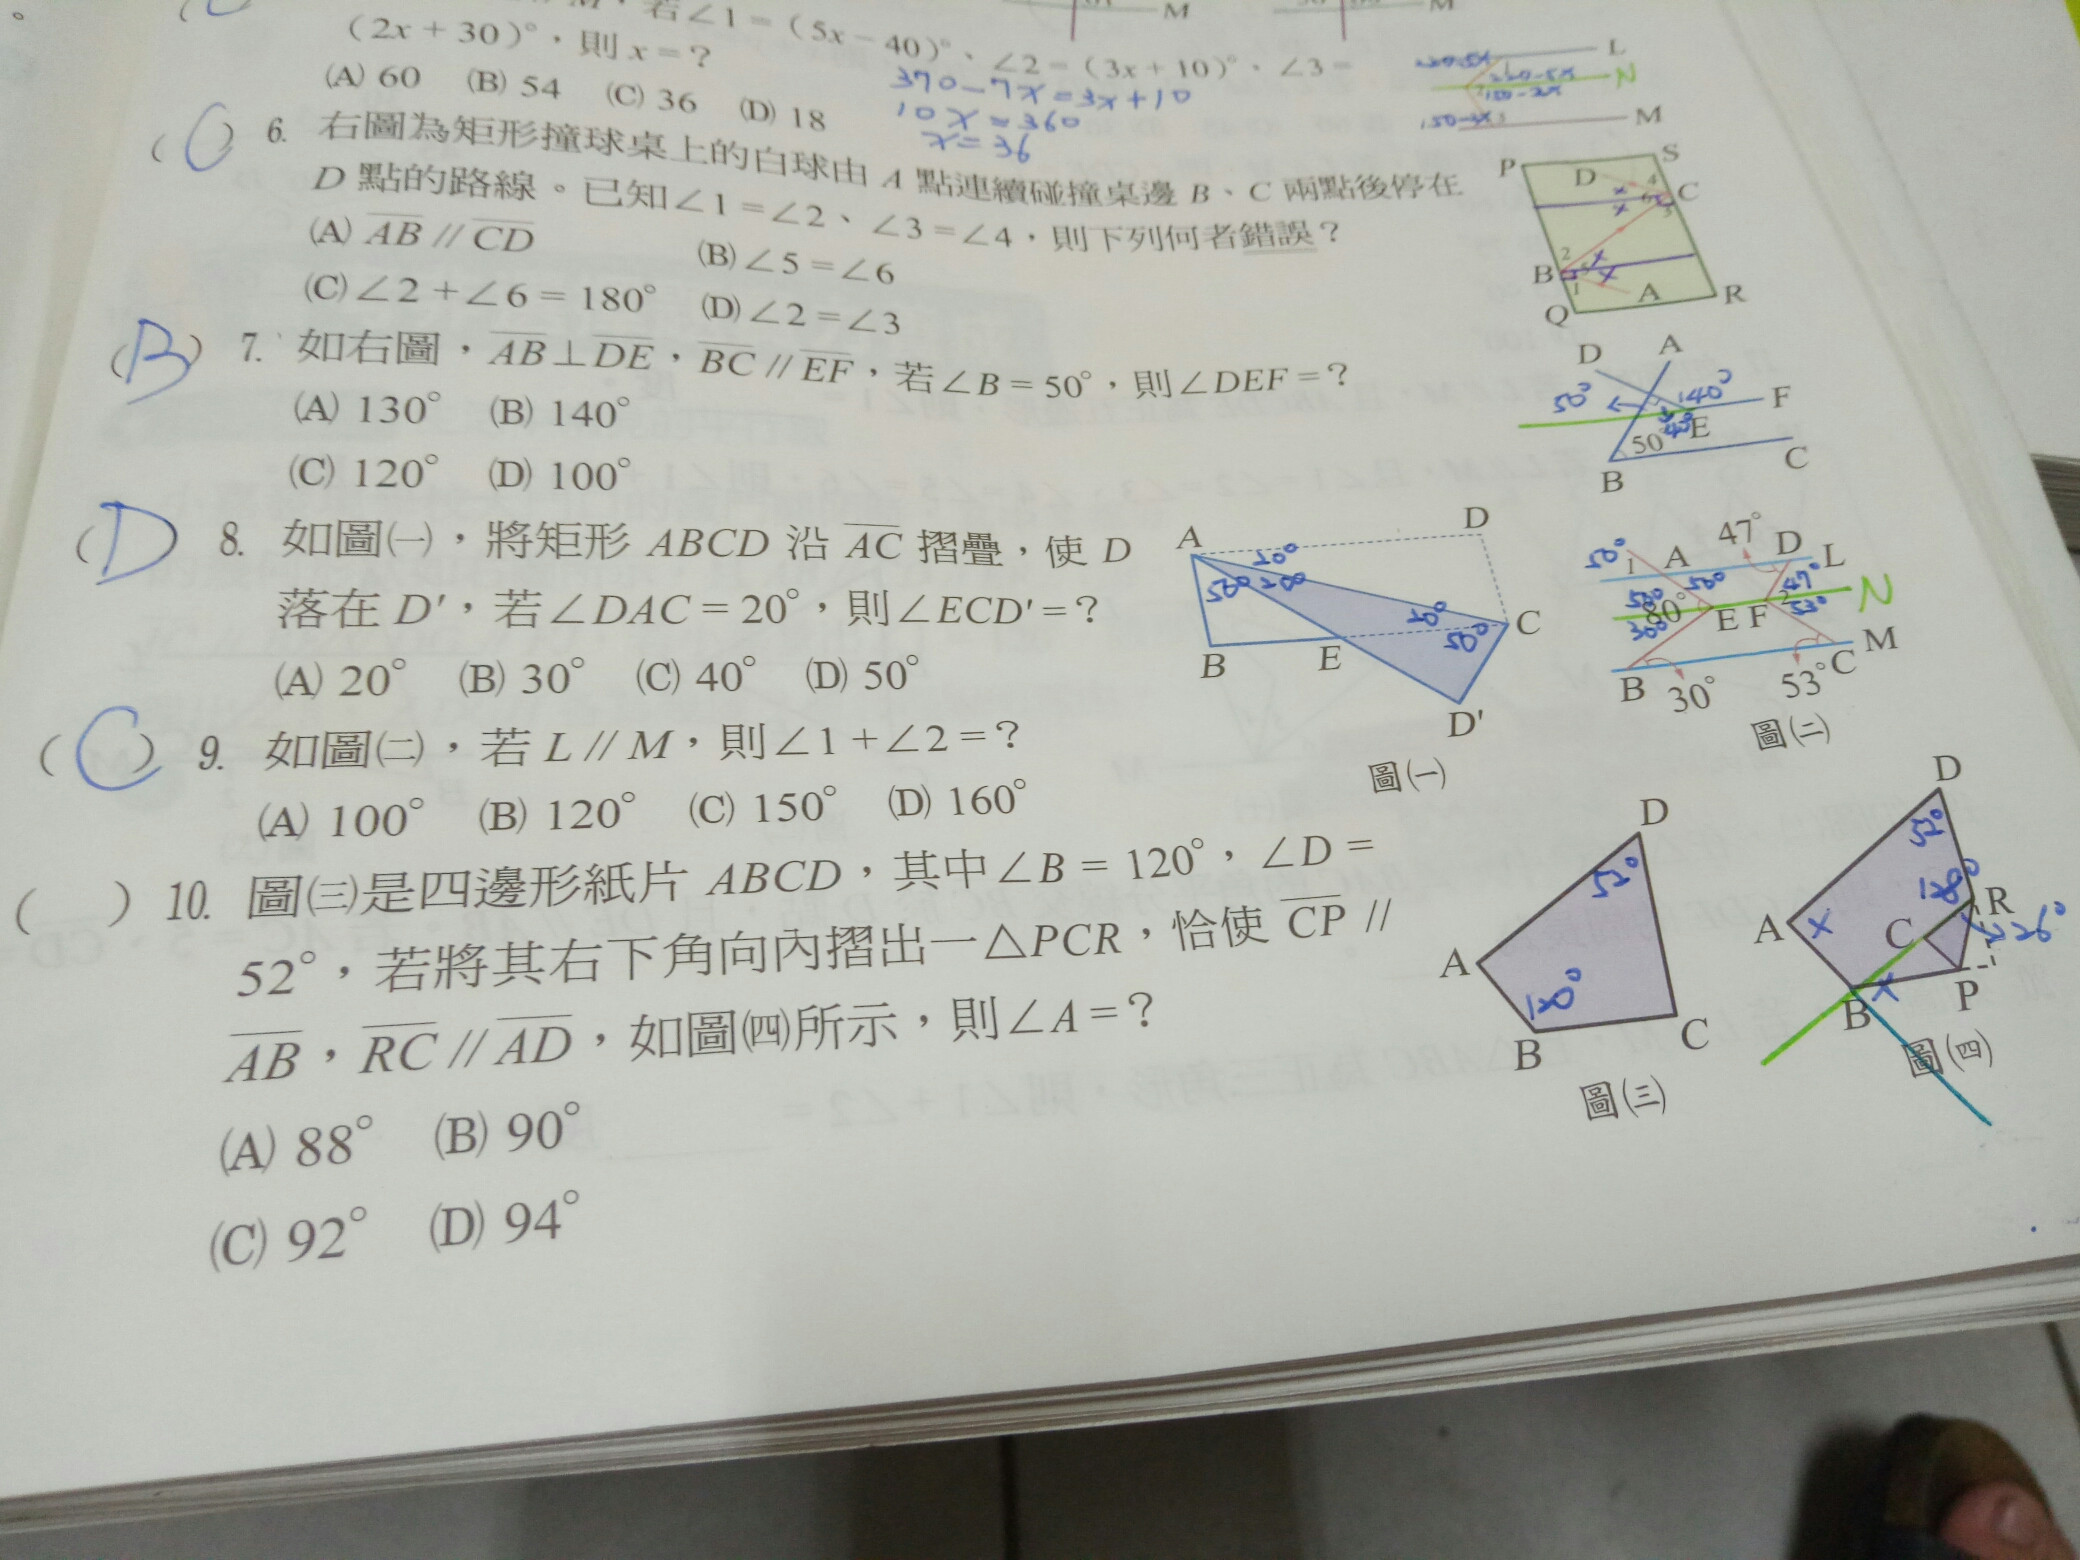 若∠1=(5x-40)°、∠2=(3x+10)°、∠3=
(2x+30)°,則x=?
(A) 60 (B) 54 (C) 36 (D) 18
370-7x=3x+10
10x=360
x=36
L
N
M
(C) 6. 右圖為矩形撞球桌上的白球由 A 點連續碰撞桌邊 B、C 兩點後停在
D 點的路線。已知∠1=∠2、∠3=∠4,則下列何者錯誤?
(A) AB // CD (B) ∠5=∠6
(C) ∠2+∠6=180° (D) ∠2=∠3
P S D C B A Q R
(B) 7. 如右圖,AB⊥DE,BC // EF,若∠B=50°,則∠DEF=?
(A) 130° (B) 140°
(C) 120° (D) 100°
D A F E B C 50° 50° 140°
(D) 8. 如圖㈠,將矩形 ABCD 沿 AC 摺疊,使 D
落在 D',若∠DAC=20°,則∠ECD'=?
(A) 20° (B) 30° (C) 40° (D) 50°
A D B E C D'
圖㈠
(C) 9. 如圖㈡,若 L // M,則∠1+∠2=?
(A) 100° (B) 120° (C) 150° (D) 160°
50° 1 A 47° D L
80° E F 2 N
B 30° 53° C M
圖㈡
( ) 10. 圖㈢是四邊形紙片 ABCD,其中∠B=120°,∠D=
52°,若將其右下角向內摺出一△PCR,恰使 CP //
AB,RC // AD,如圖㈣所示,則∠A=?
(A) 88° (B) 90°
(C) 92° (D) 94°
D 52° A B C
圖㈢
D 52° A x C R B x P
圖㈣